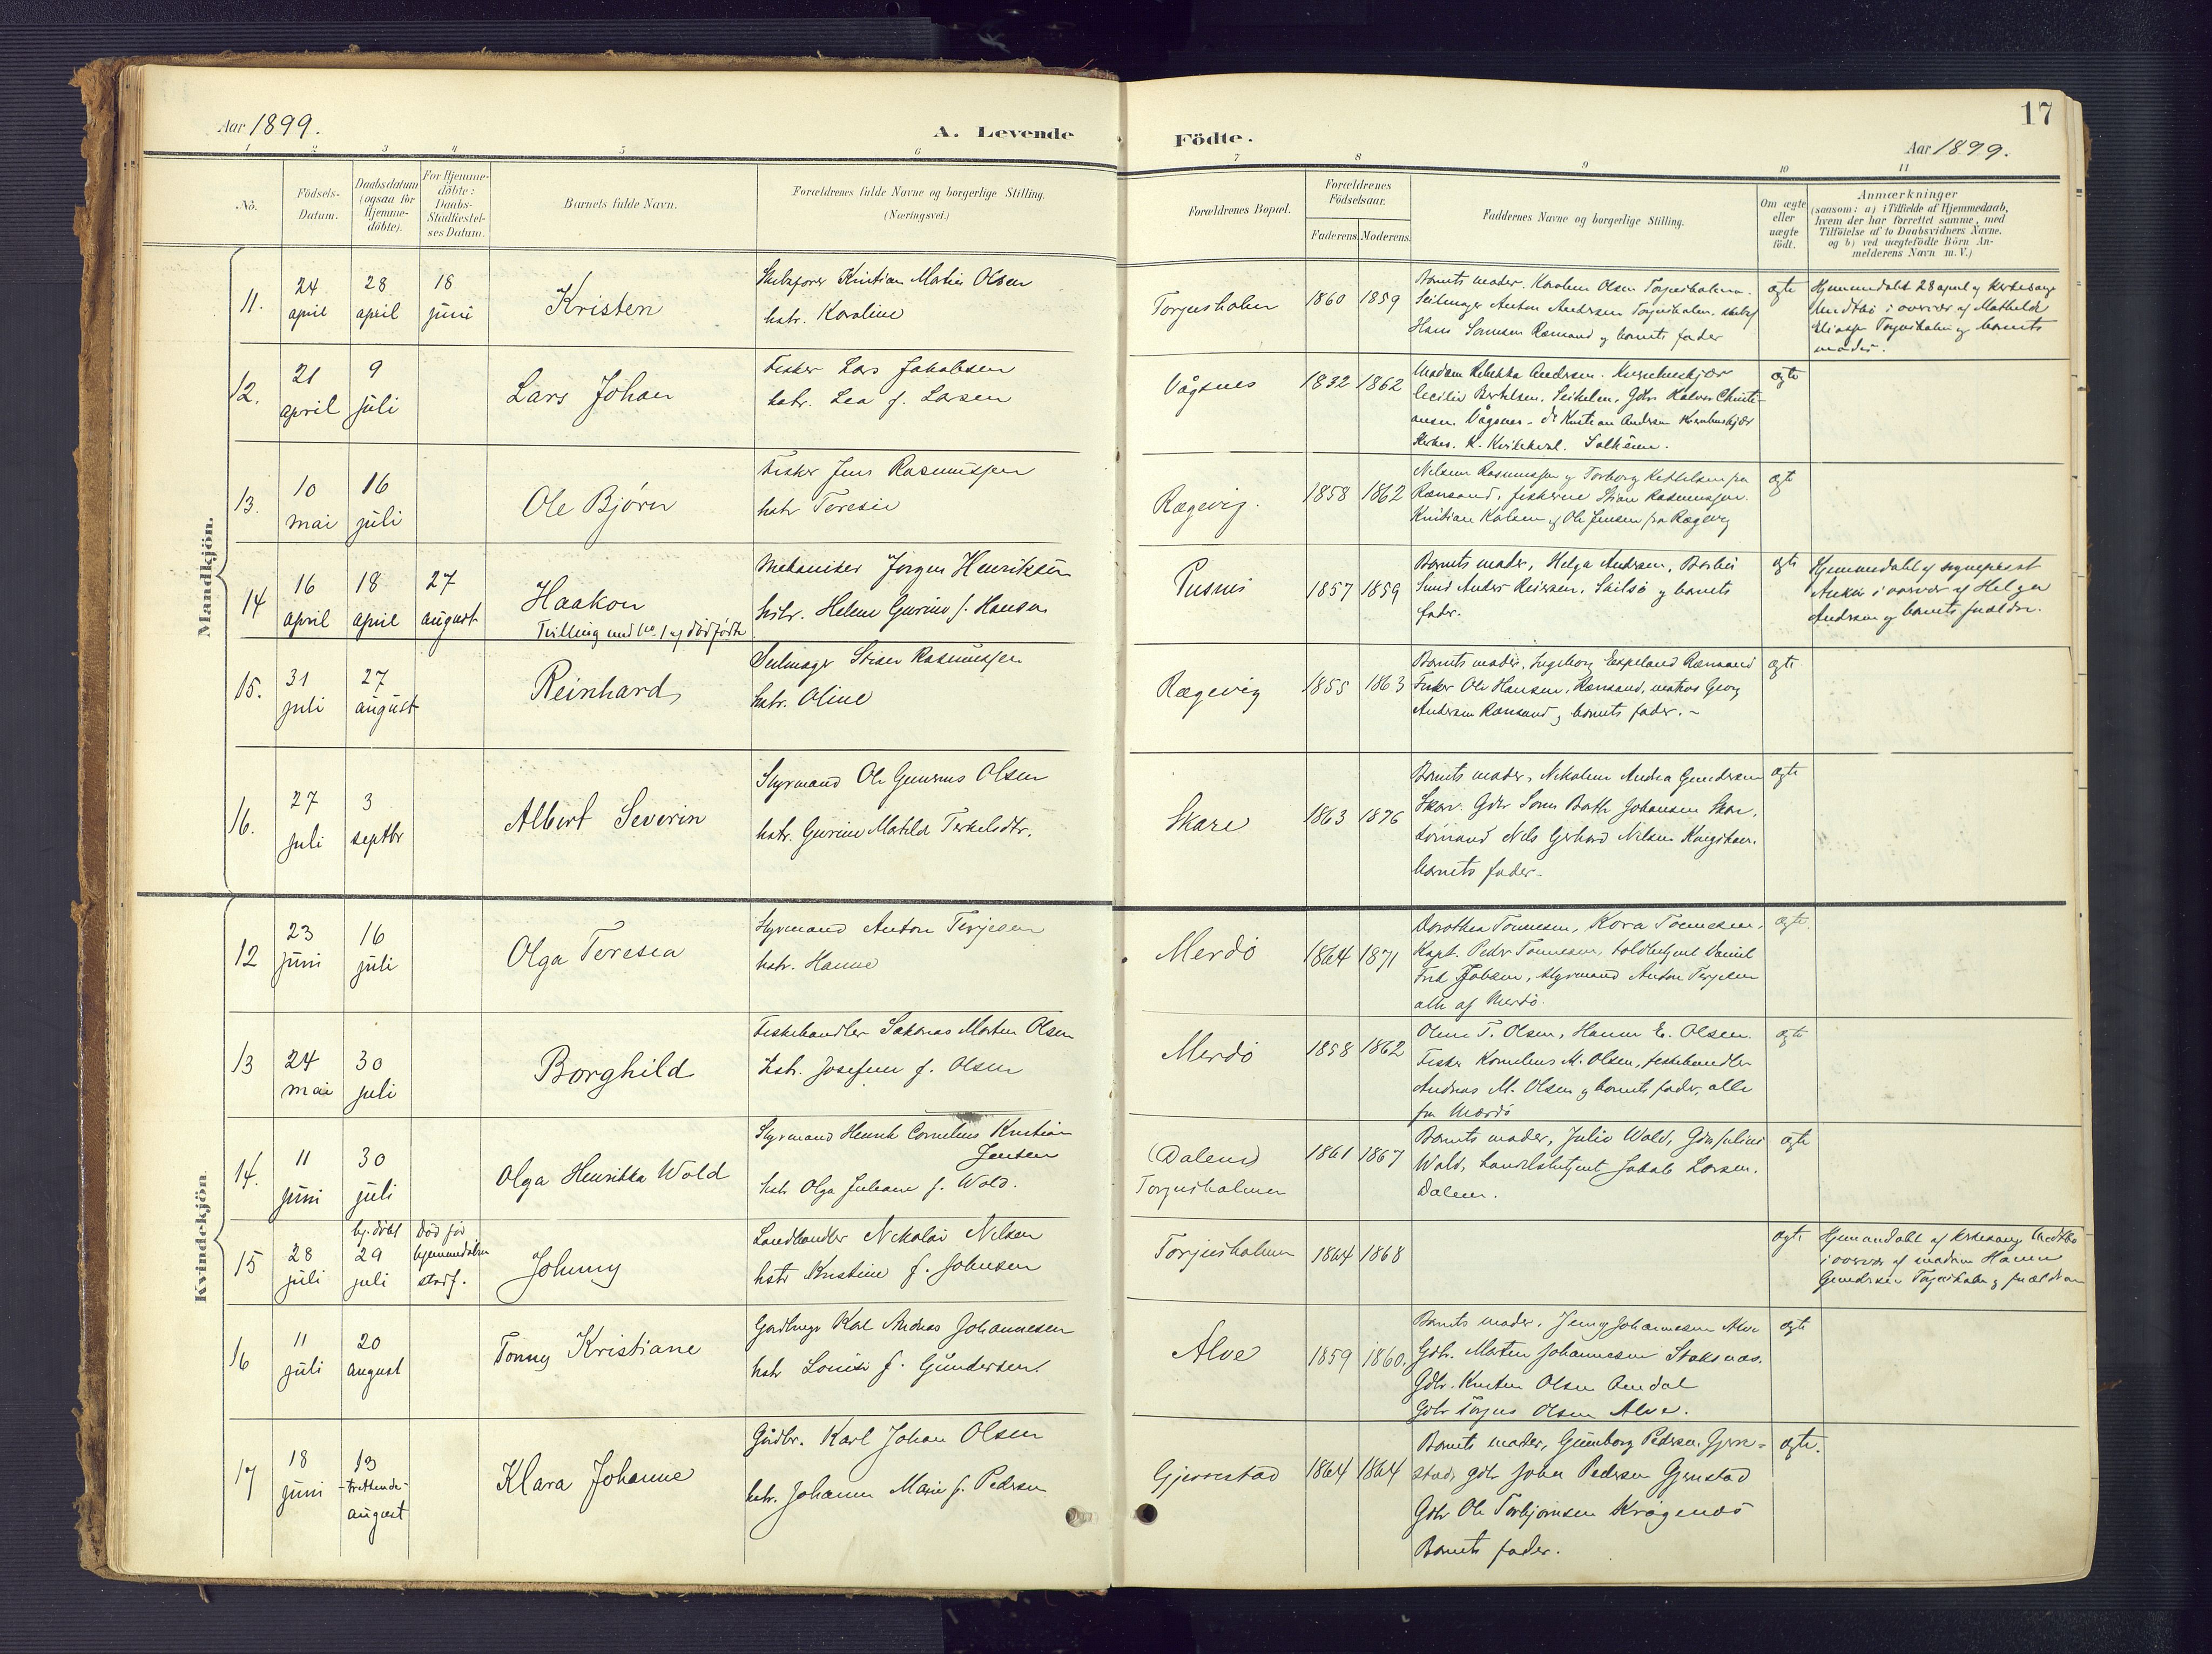 17
Aar 1899.
A. Levende
Födte.
Aar 1899.
1 2 3 4 5 6 7 8 9 10 11
No.
Födsels-
Datum.
Daabsdatum
(ogsaa for
Hjemme-
döbte).
For Hjemme-
döbte:
Daabs-
Stadfæstel-
ses Datum.
Barnets fulde Navn.
Forældrenes fulde Navne og borgerlige Stilling.
(Næringsvei.)
Forældrenes Bopæl.
Forældrenes
Födselsaar.
Faderens. Moderens.
Faddernes Navne og borgerlige Stilling.
Om ægte
eller
uægte
födt.
Anmærkninger
(saasom: a) i Tilfælde af Hjemmedaab,
hvem der har forrettet samme, med
Tilföielse af to Daabsvidners Navne.
og b) ved uægtefödte Börn An-
melderens Navn m.V.)
Mandkjön.
11.
24
april
28
april
18
juni
Kristen
Kristian Martin Olsen
hstr. Karoline
Torjusholm
1860 1859
Barnets moder. Karoline Olsen Torjusholmen.
Seilmager Anton Andersen Torjusholm.
Hans Rævesand og barnets fader
ægte
Hjemmedøbt 28 april af kirkesanger
i overvær af Mathilde
Torjusholm og barnets
moder.
12.
21
april
9
juli
Lars Johan
Fisker Lars Jakobsen
hstr. Lea f. Larsen
Vågsnes
1832 1862
Madam Rebekka Andersen.
Cecilie Bertelsen. Gdbr. Halvor Christi-
ansen Vågsnes - Kristian Andersen
ægte
13.
10
mai
16
juli
Ole Björn
Fisker Jens Rasmussen
hstr Teresie
Rægevig.
1858 1862
Rasmussen og Torborg Kettelsen fra
Rævesand, fiskerne Rasmussen.
Kristian og Ole Jensen fra Rægevig
ægte
14
16
april
18
april
27
august
Haakon
Tvilling med No. 1 af dødfødte
Mekaniker Jörgen Henriksen
hstr. Helene Gurine f. Hansen
Pusnes
1857 1859
Barnets moder, Helga Andersen,
Smed Anders og barnets
fader.
ægte
Hjemmedøbt af sogneprest
i overvær af Helga
Andersen og barnets forældre.
15.
31
juli
27
august
Reinhard
Seilmager Rasmussen
hstr. Oline
Rægevig
1855 1863
Barnets moder, Ingeborg Rævesand
Fisker Ole Hansen, Rævesand, matros Georg
Andersen Rævesand og barnets fader. -
ægte
16.
27
juli
3
septbr
Albert Severin
Styrmand Ole Gunerius Olsen
hstr. Gurine Matilde Terkelsdtr.
Skare
1863 1876
Barnets moder, Nikoline Andrea Gundersen
Skare. Gdbr Johansen Skare,
Nils Gerhard Nilsen
barnets fader.
ægte
Kvindekjön.
12
23
juni
16
juli
Olga Teresia
Styrmand Anton Terjesen
hstr. Hanne
Merdö
1864 1871
Dorothea Tonnesen, Kora Tonnesen.
Kapt. Peder Tonnesen, toldbetjent Daniel
Fred. Jobsen, styrmand Anton Terjesen
alle af Merdö.
ægte.
13
24
mai
30
juli
Borghild
Fiskehandler Morten Olsen
hstr. Josefine f. Olsen
Merdö
1858 1862
Oline T. Olsen, Hanne E. Olsen.
Fisker Kornelius M. Olsen, fiskehandler
Andreas M. Olsen og barnets fader, alle
fra Merdö
ægte
14.
11
juni
30
juli
Olga Henrikka Wold
Styrmand Henrik Cornelius Kristian
Jensen
hstr Olga Juliane f. Wold.
(Dalene)
Torjusholmen
1861 1867
Barnets moder, Julie Wold, Gdbr Julius
Wold, handelsbetjent Jakob Larsen.
Dalen.
ægte
15
28
juli
hj. döbt
29
juli
Död før
hjemmedåben
stadf.
Johnny
Landhandler Nikolai Nilsen
hstr Kristine f. Johnsen
Torjusholmen
1864 1868
ægte
Hjemmedøbt af kirkesanger
i overvær af madam Hanne
Gundersen Torjusholm og forældrene
16
11
juli
20
august
Tonny Kristiane
Gårdbruger Karl Andreas Johannesen
hstr Louise f. Gundersen.
Alve
1859 1860.
Barnets moder, Jenny Johannesen Alve
Gdbr. Morten Johannesen
Gdbr. Olsen
Gdbr Torjus Olsen Alve.
ægte
17
18
juni
13
-trettende-
august
Klara Johanne
Gårdbr. Karl Johan Olsen
hstr. Johanne Marie f. Pedersen
Gjerrestad
1864 1864
Barnets moder, Gunborg Pedersen, Gjerre-
stad, gdbr Johan Pedersen Gjerrestad
Gdbr Ole Torbjørnsen
Barnets fader.
ægte.